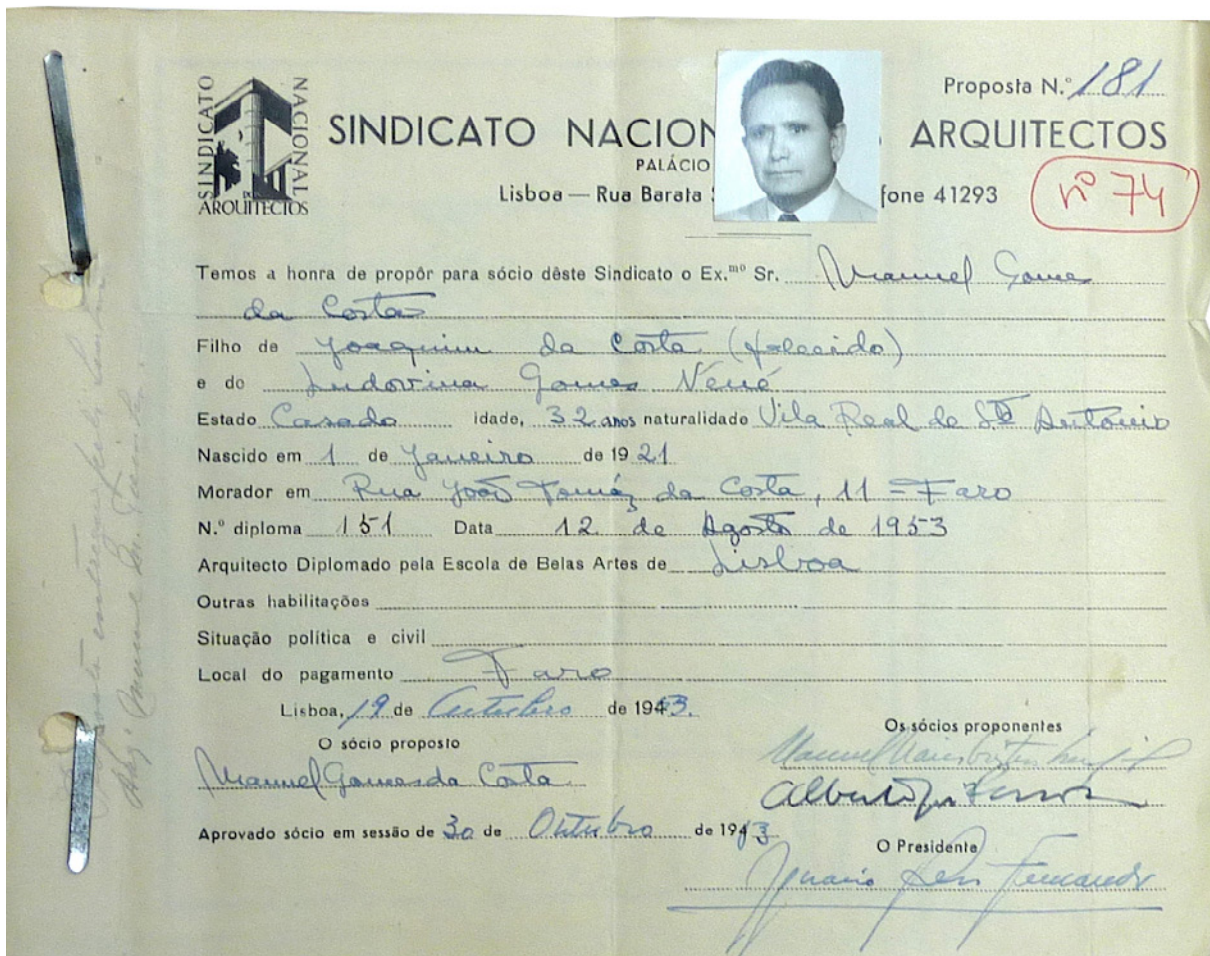 Proposta N.º 181
SINDICATO NACIONAL DE ARQUITECTOS
SINDICATO NACION ARQUITECTOS
PALÁCIO
Lisboa — Rua Barata fone 41293
nº 74
Temos a honra de propôr para sócio dêste Sindicato o Ex.mo Sr. Manuel Gomes
da Costa
Filho de Joaquim da Costa (falecido)
e de Ludovina Gomes Nené
Estado Casado idade, 32 anos naturalidade Vila Real de Stº António
Nascido em 1 de Janeiro de 1921
Morador em Rua João Tomáz da Costa, 11 = Faro
N.º diploma 151 Data 12 de Agosto de 1953
Arquitecto Diplomado pela Escola de Belas Artes de Lisboa
Outras habilitações
Situação política e civil
Local do pagamento Faro
Lisboa, 19 de Outubro de 1953.
O sócio proposto
Os sócios proponentes
Manuel Gomes da Costa
Aprovado sócio em sessão de 30 de Outubro de 1953
O Presidente